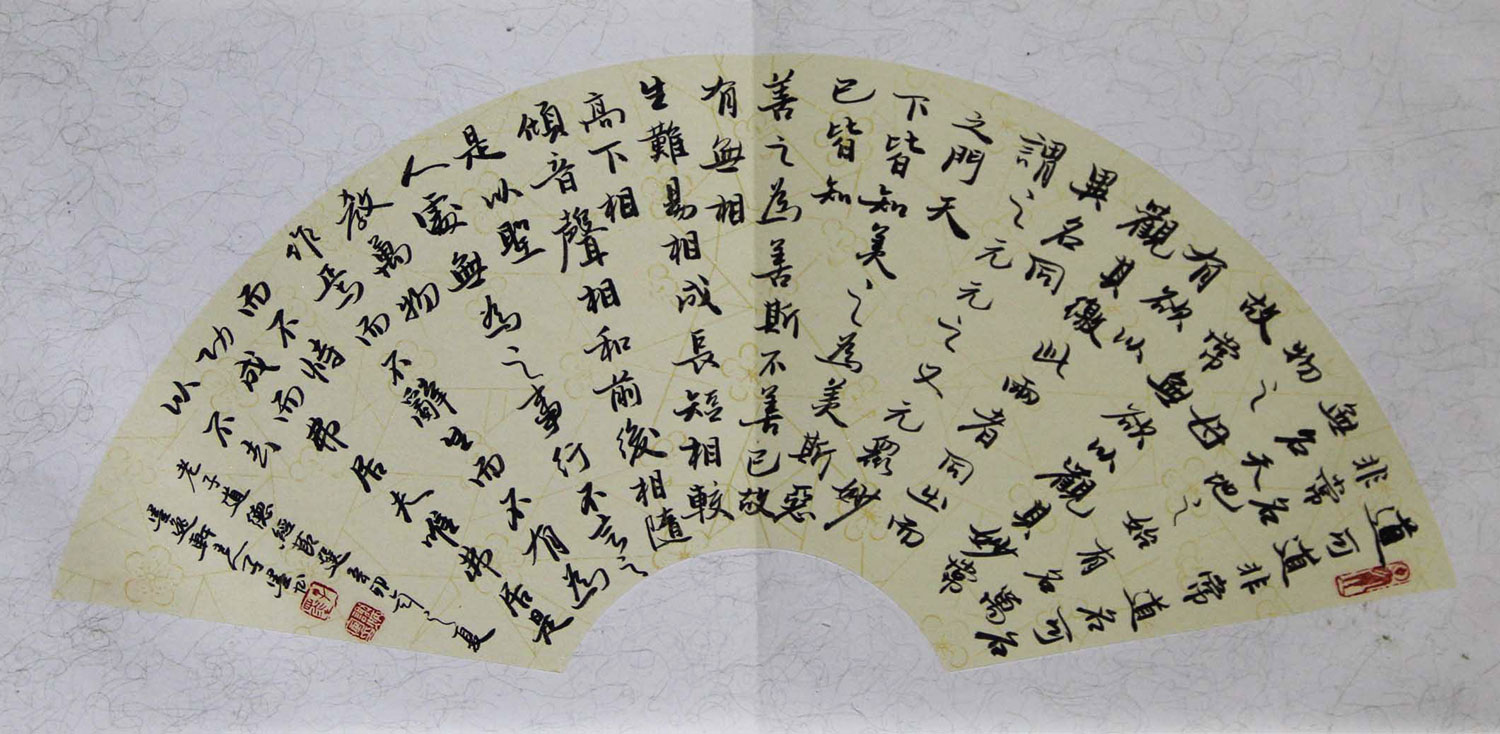 道可道非常道名可名
非常名
無名天地之始有名萬
物之母
故常無欲以觀其妙常
有欲以
觀其徼此兩者同出而
異名同
謂之元元之又元眾妙
之門天
下皆知美之為美斯惡
已皆知
善之為善斯不善已故
有無相
生難易相成長短相較
高下相
傾音聲相和前後相隨
是以聖
人處無為之事行不言之
教萬物
作焉而不辭生而不有為
而不恃
功成而弗居夫唯弗居是
以不去
老子道德經 辛卯 夏